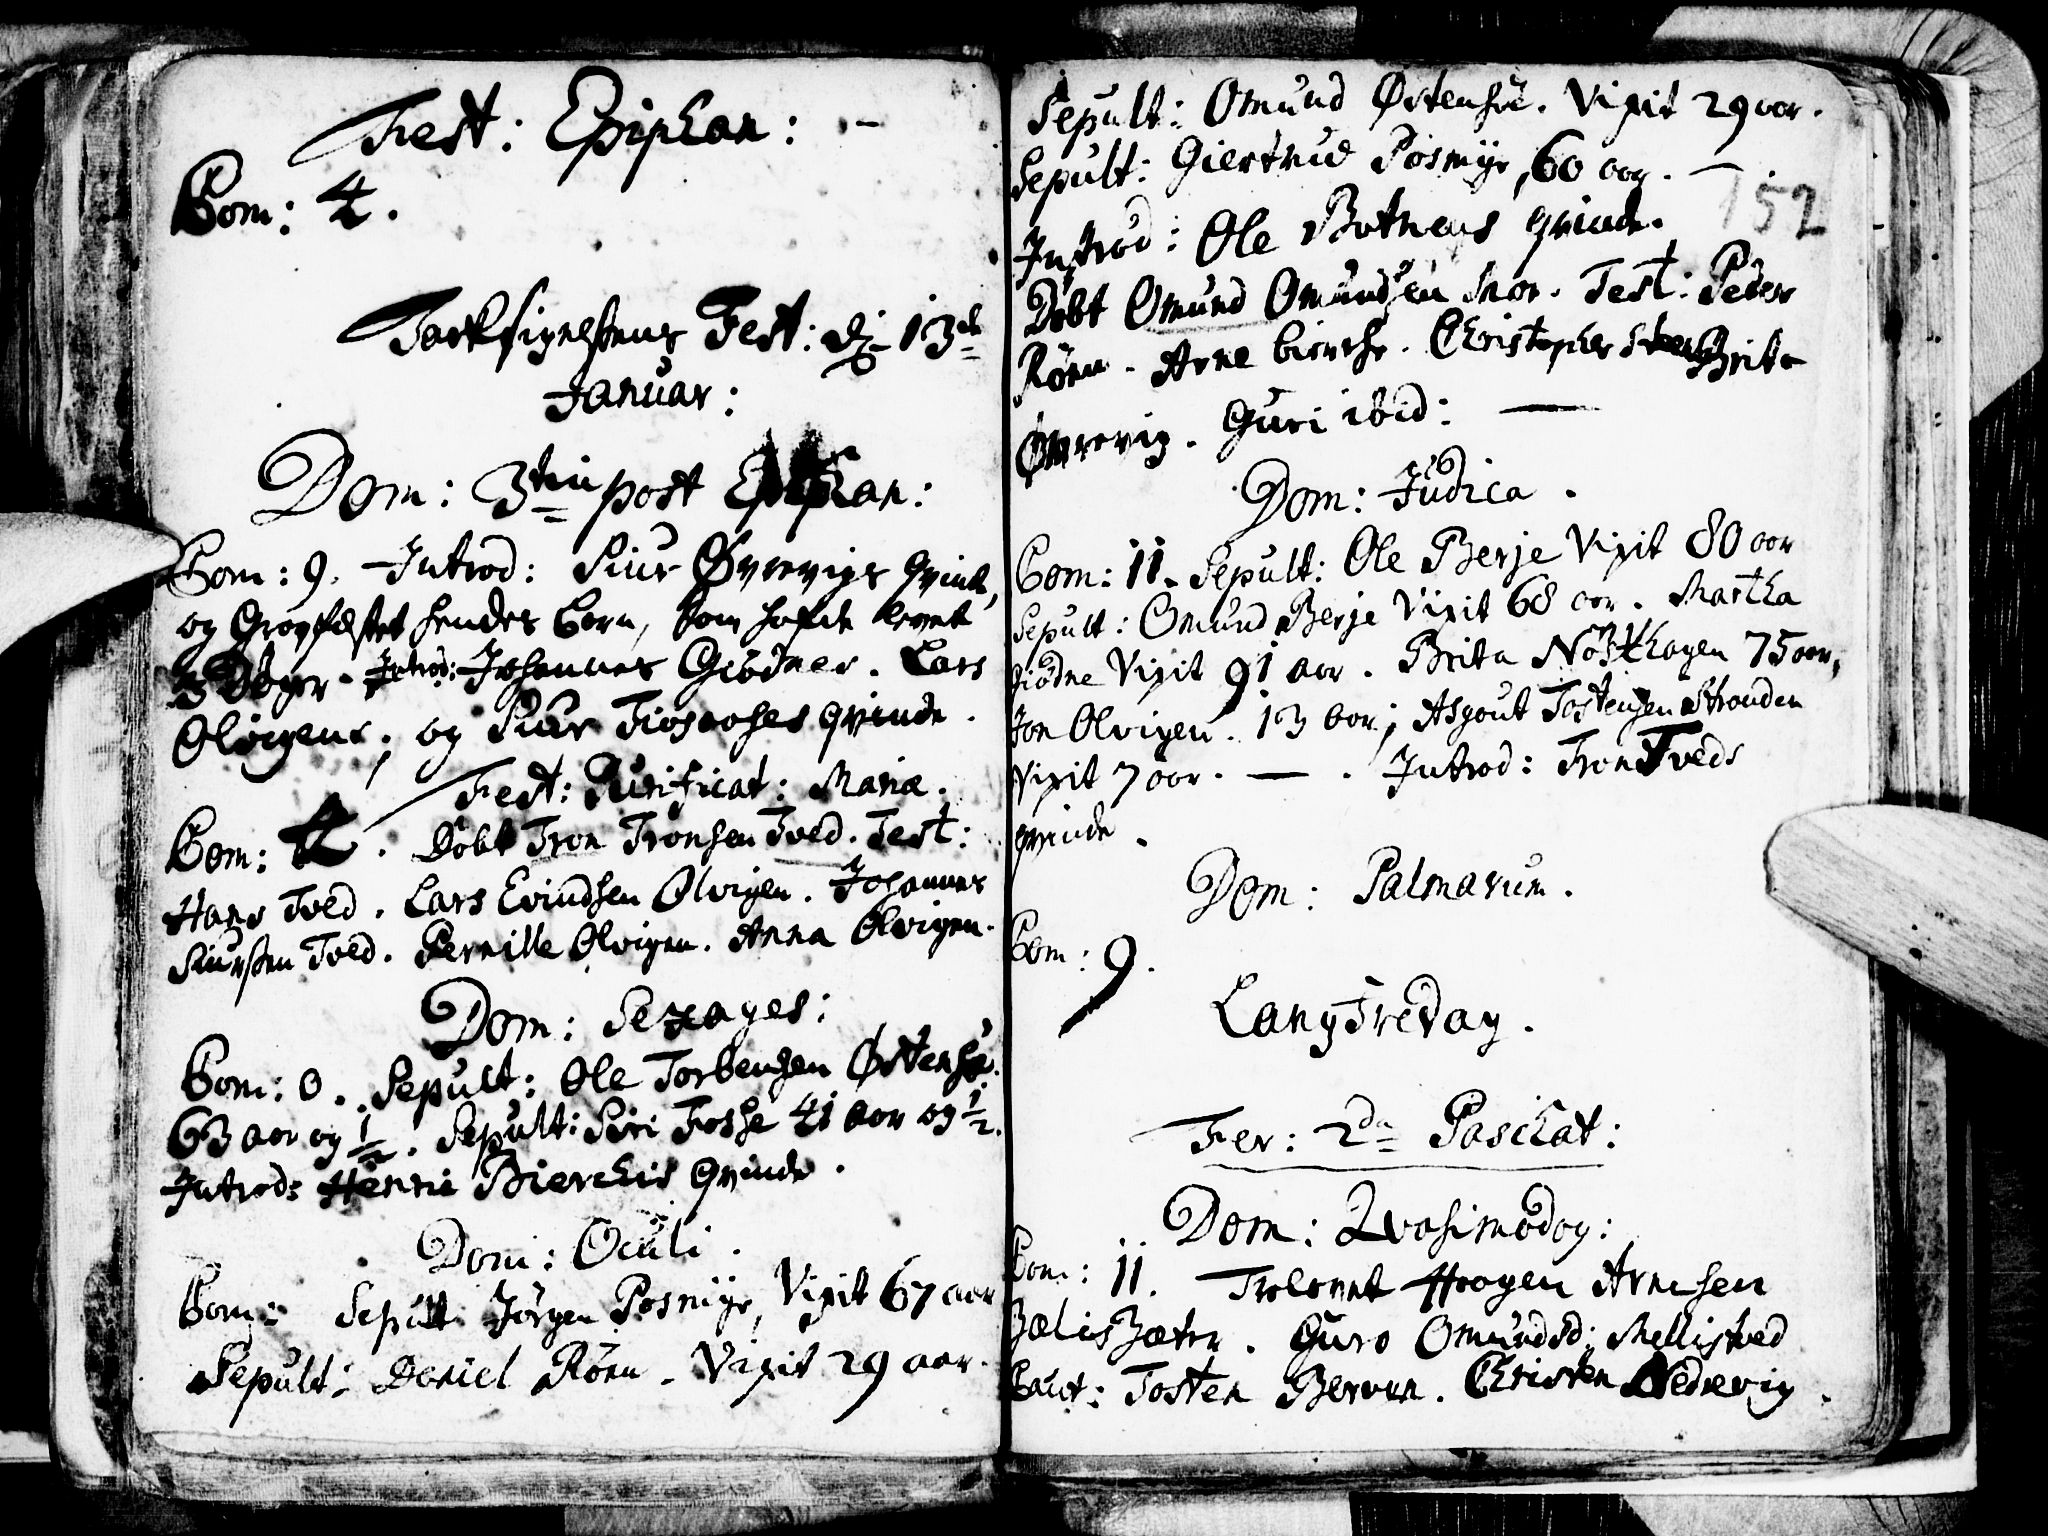 Fest: Epiphan: -
Com: 4.
Tacksigelsens Fest: d: 13de
Januar:
Dom: 3tia post Epiphan:
Com: 9. Introd: Siur Øvrevigs Qvinde,
og Gravfæstet hendes Born, som hafde levet
3 Døger. Introd: Johannes Giødnes. Lars
Olvigens, og Siur Fiosaases Qvinde.
Fest: Purificat: Mariæ.
Com: 4. Døbt Tron Tronsen Tved. Test:
Hans Tved. Lars Evindsen Olvigen. Johannes
Siursen Tved. Pernille Olvigen. Anna Olvigen.
Dom: Sexages:
Com: 0. Sepult: Ole Torbensen Østensø.
63 aar og 1/2. Sepult: Siri Fosse 41 aar og 1/2.
Introd: Henric Bierckis Qvinde.
Dom: Oculi.
Com: Sepult Jörgen Posmyr, Vixit 67 aar
Sepult: Daniel Rörn. Vixit 29 aar.
Sepult: Omund Østensøe. Vixit 29 aar.
Sepult: Giertrud Posmyr, 60 aar. -
152
Introd: Ole Botnens Qvinde.
Døbt Omund Omundsen Mor. Test: Peder
Rörn. Arne Christopher Brita
Øvrevig. Guri ibid: -
Dom: Judica.
Com: 11. Sepult: Ole Berje Vixit 80 aar
Sepult: Omund Berje Vixit 68 aar. Martha
Giødne Vixit 91 aar. Brita Nosthagen 75 aar,
Jon Olvigen. 13 aar; Asgout Tostensen Stranden
Vixit 7 aar. - . Introd: Tron Tveds
Qvinde.
Dom: Palmarum.
Com: 9.
Langfredag.
Fer: 2da Paschat:
Dom: Qvasimodog:
Com: 11. Trolovet Haagen Arnesen
Guro Omundsd: Mellistved
Caut: Tosten Berven. Christen Nedrevig.